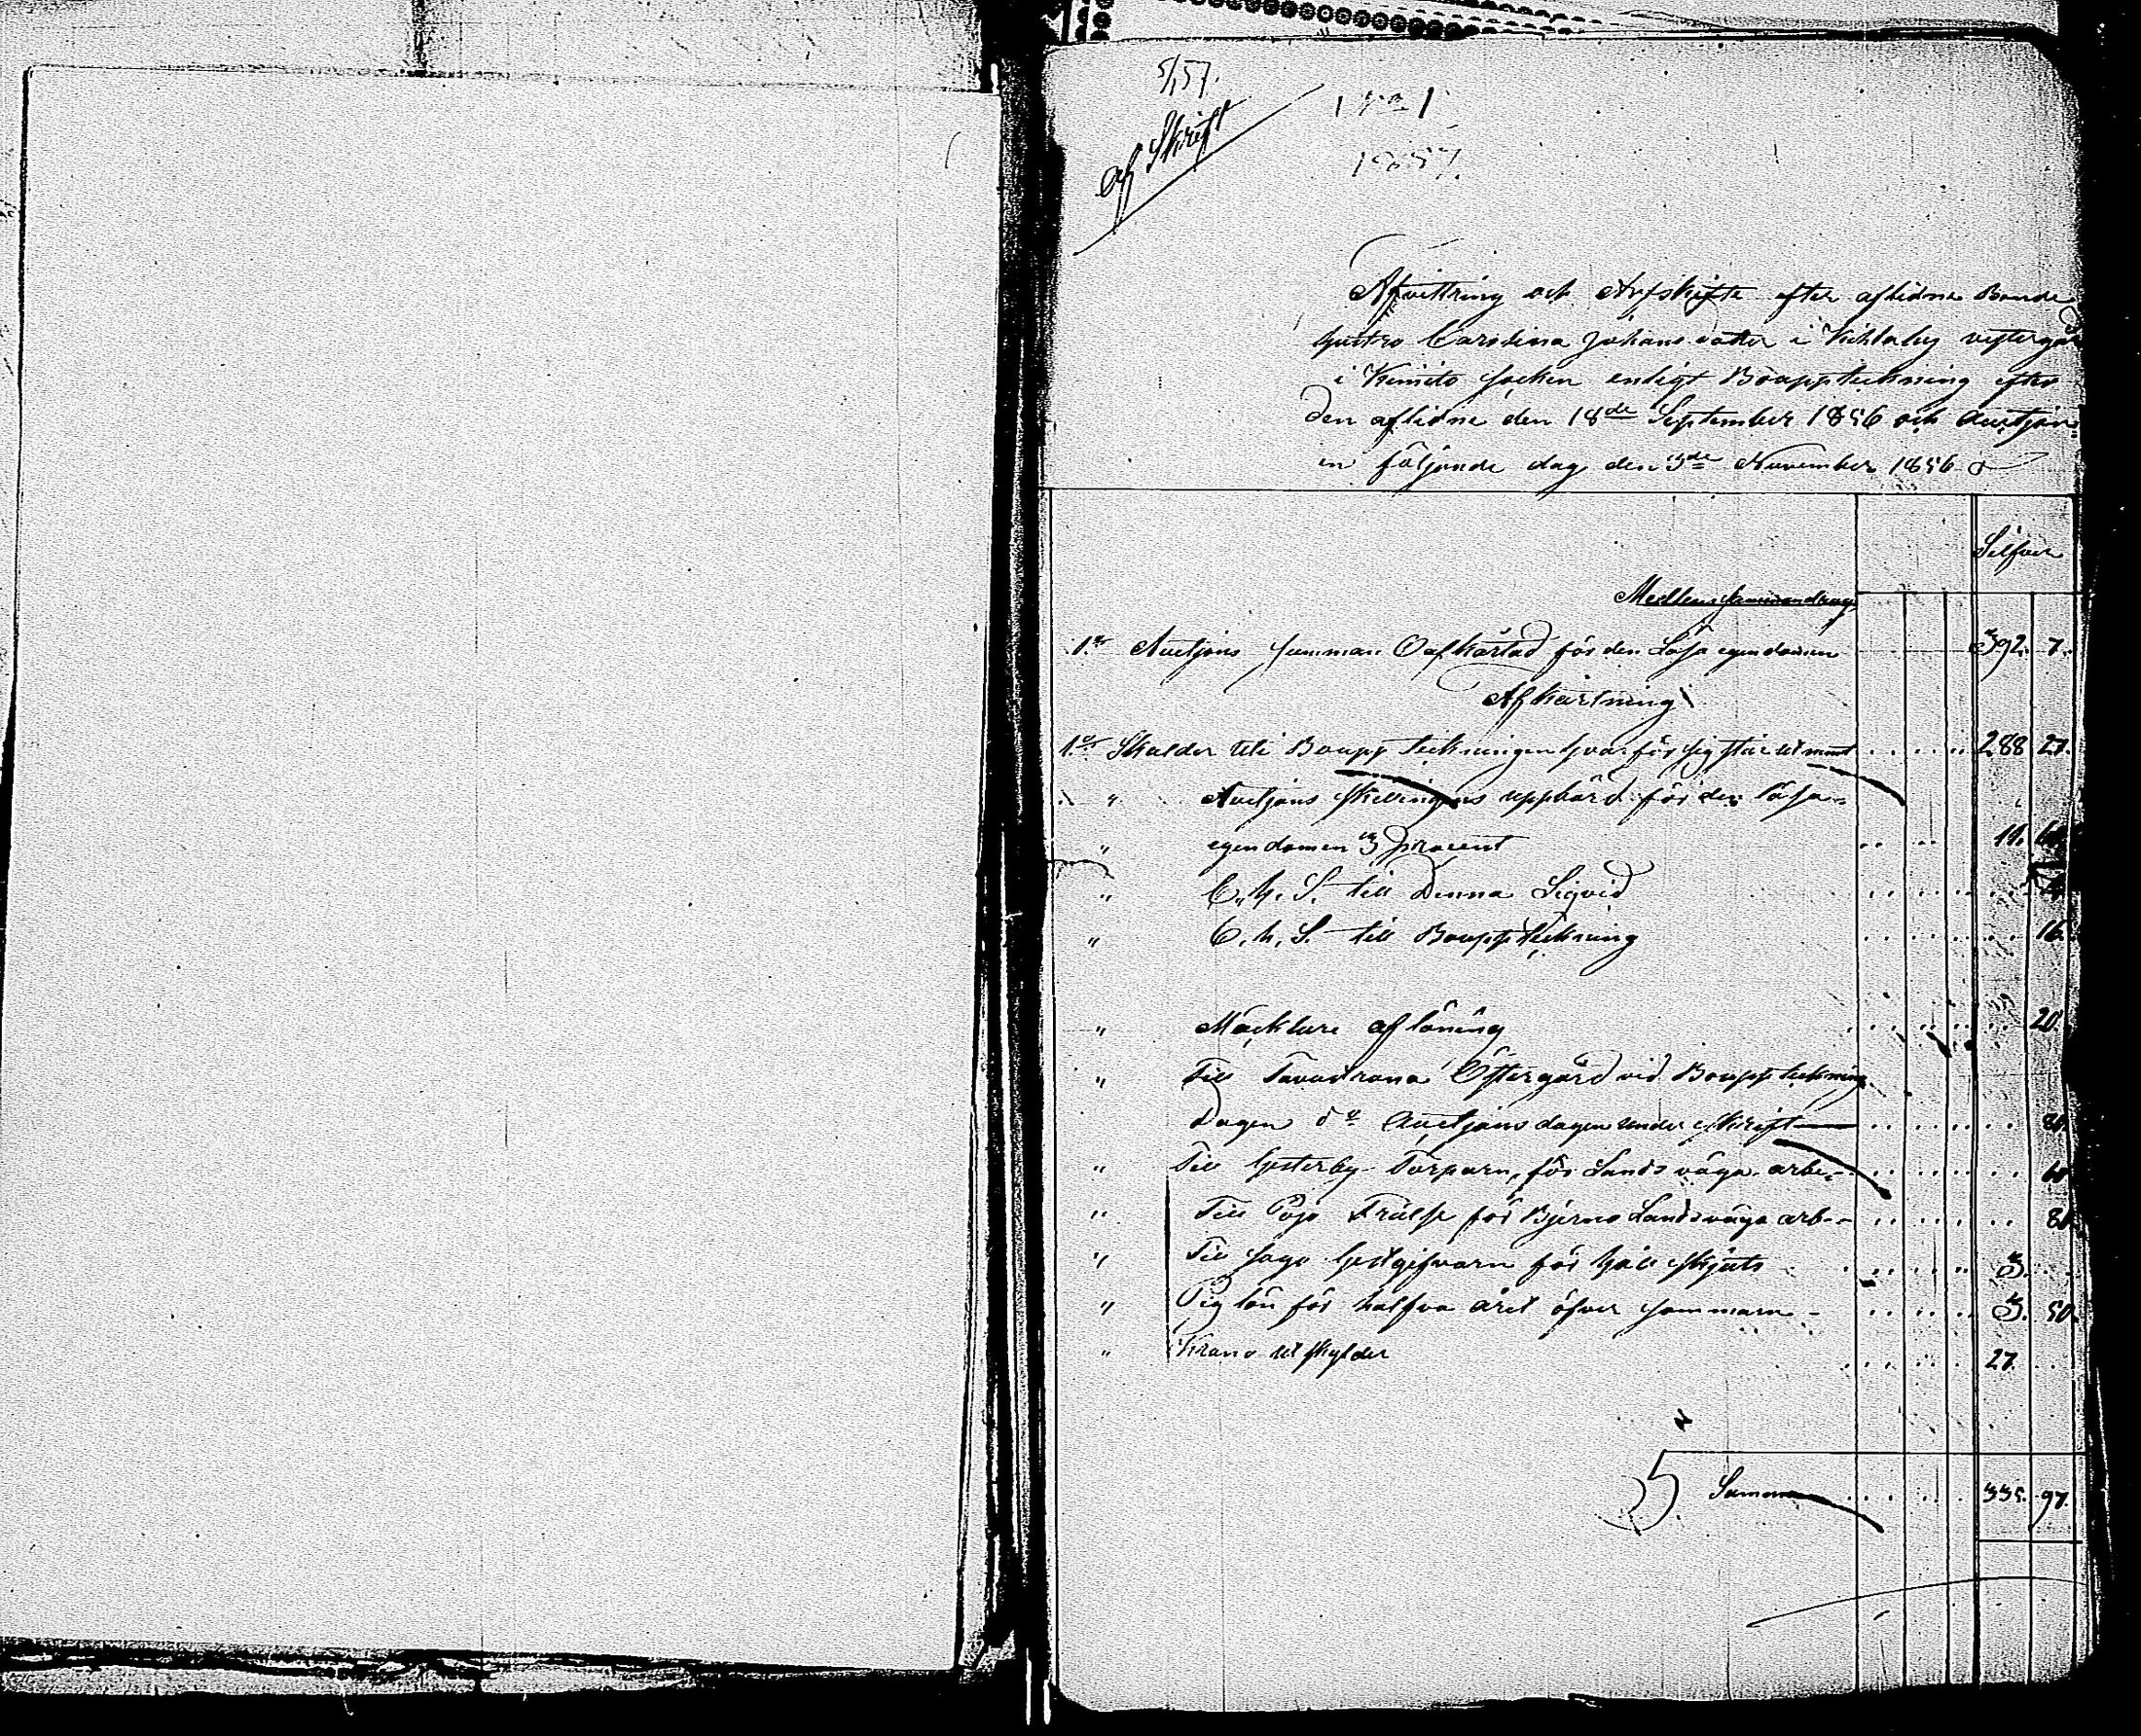 5/57.
Af Skrift
1857.
Afvittring och Arfskifte efter aflidne Bonde
hustro Carolina Johansdotter i Kihlaby vestergård
i Kimito socken enligt Bouppteckning efter
den aflidne den 18de September 1856 och Auctjon
en följande dag den 3de November 1856
Silfver
Medlens sammandrag
1o Auctjons summan Oafkårtad för den Lösa egendomen 392. 7.
Afkårtning
1o Skulder uti Bouppteckningen hvar för sig står utnämt 288 27.
" Auctjons skillingens uppbörd för den lösa
" egendomen 3 procent 11.
" C. h. S. till Denna
" C. h. S. till Bouppteckning 16.
" Mäcklare aflöning 20.
" Till Östergård vid Bouppteckning
Dagen Auctjons dagen under skrift 80.
" Till Gesterby Torparn, för Landsväga arbe- 60
" Till Pojo Frälse för Bjerno Landsväga arb-- 80
" Till Gestgifvarn för håll skjuts 3.
" Pig lön för halfva året öfver sommarn - 3. 50.
" Krono utskylder 27.
Summa 335. 97.